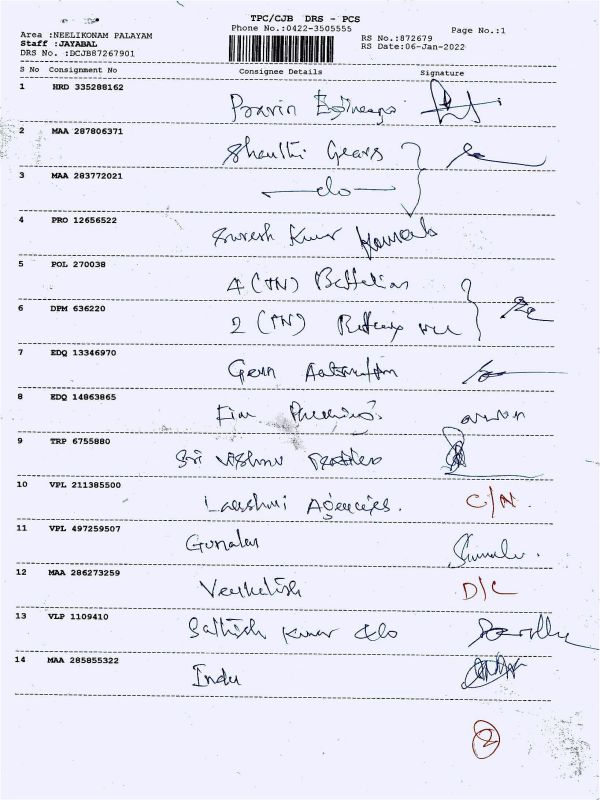 TPC/CJB DRS - PCS
Phone No.:0422-3505555
Page No.:1
Area :NEELIKONAM PALAYAM
Staff :JAYABAL
DRS No. :DCJB87267901
RS No.:872679
RS Date:06-Jan-2022
S No Consignment No Consignee Details Signature
1 HRD 335288162
2 MAA 287806371 Shanthi Gears
3 MAA 283772021 do
4 PRO 12656522 Suresh Kumar
5 POL 270038 4 (TN) Battalion
6 DPM 636220 2 (TN)
7 EDQ 13346970
8 EDQ 14863865
9 TRP 6755880 Sri Vishnu
10 VPL 211385500 Lakshmi Agencies. C/N
11 VPL 497259507 Gunalan
12 MAA 286273259 D/C
13 VLP 1109410 Sathish Kumar
14 MAA 285855322 Indu
2